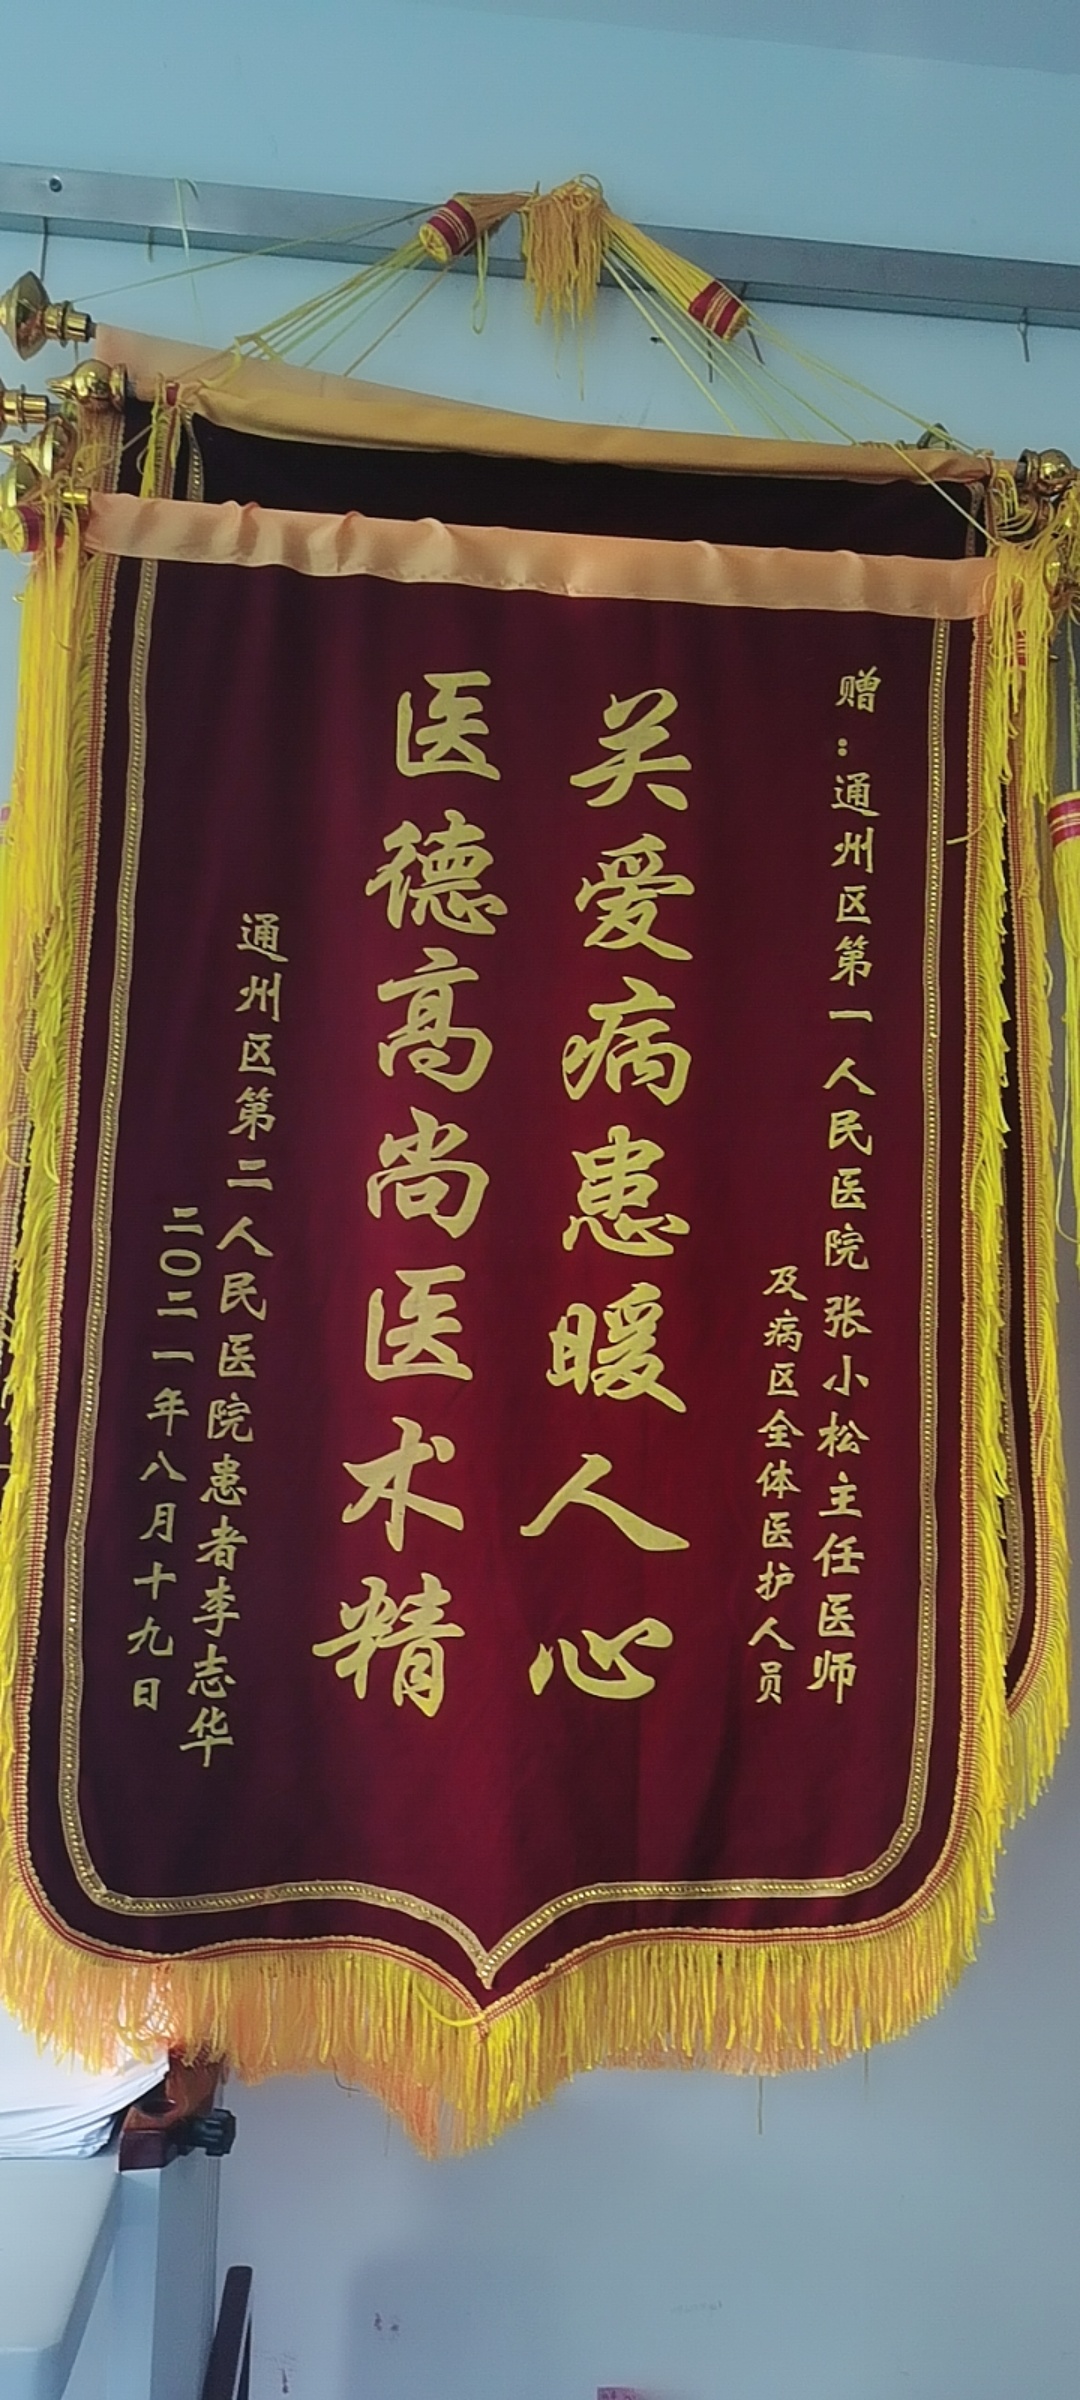 赠：通州区第一人民医院张小松主任医师
及病区全体医护人员
关爱病患暖人心
医德高尚医术精
通州区第二人民医院患者李志华
二〇二一年八月十九日